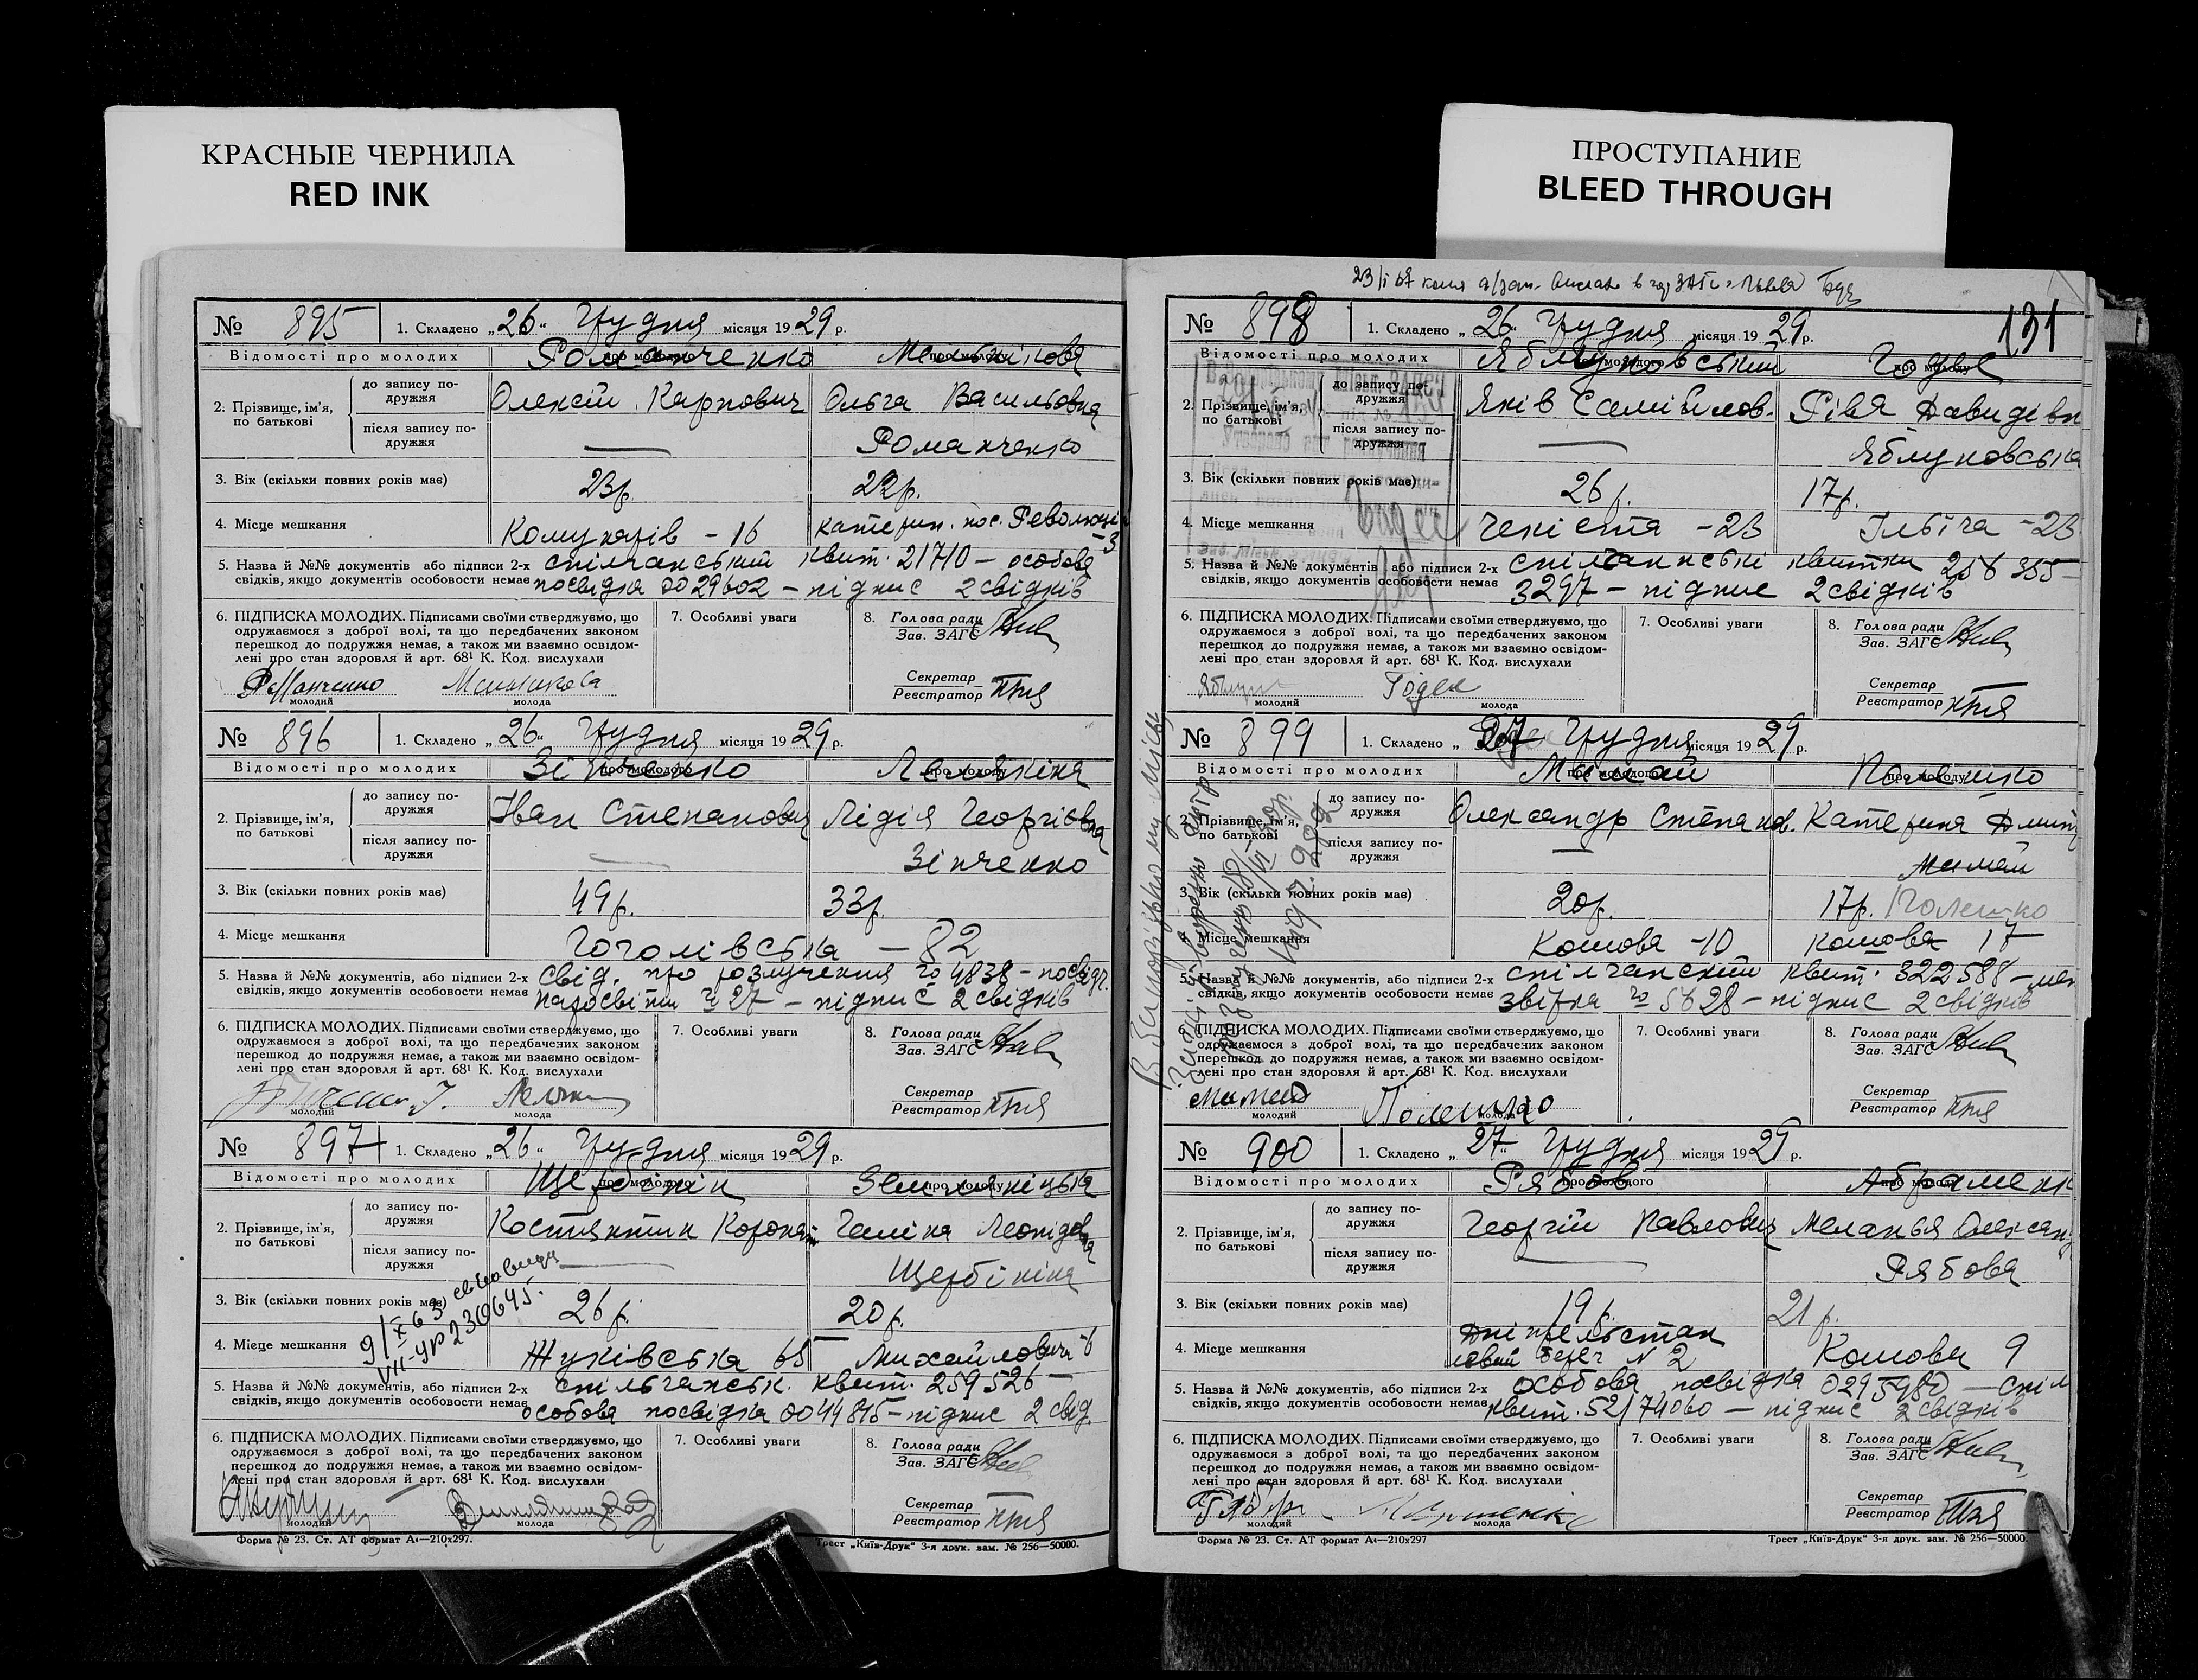 КРАСНЫЕ ЧЕРНИЛА
RED INK
ПРОСТУПАНИЕ
BLEED THROUGH
№ 895 1. Складено „26“ Грудня місяця 1929 р.
Відомості про молодих про молодого про молоду
Романченко Мельнікова
2. Прізвище, ім'я, по батькові
до запису подружжя
Олексій Карпович Ольга Васильовна
після запису подружжя
— Романченко
3. Вік (скільки повних років має) 23р. 22р.
4. Місце мешкання Комунарів - 16 Катерин. пос. Революції - 3
5. Назва й №№ документів або підписи 2-х спілчанський квит. 21710 — особова
свідків, якщо документів особовости немає посвідка 0029602 — підпис 2 свідків
6. ПІДПИСКА МОЛОДИХ. Підписами своїми стверджуємо, що
одружаємося з доброї волі, та що передбачених законом
перешкод до подружжя немає, а також ми взаємно освідом-
лені про стан здоровля й арт. 68¹ К. Код. вислухали
Романченко Мельникова
молодий молода
7. Особливі уваги
8. Голова ради
Зав. ЗАГС
Секретар
Реєстратор
№ 896 1. Складено „26“ Грудня місяця 1929 р.
Відомості про молодих про молодого про молоду
Зінченко
2. Прізвище, ім'я, по батькові
до запису подружжя
Іван Степанович Лідія Георгіовна
після запису подружжя
— Зінченко
3. Вік (скільки повних років має) 49р. 33р.
4. Місце мешкання Гоголівська — 82
5. Назва й №№ документів, або підписи 2-х свід. про розлучення № 4838 — посвідч.
свідків, якщо документів особовости немає № 27 — підпис 2 свідків
6. ПІДПИСКА МОЛОДИХ. Підписами своїми стверджуємо, що
одружаємося з доброї волі, та що передбачених законом
перешкод до подружжя немає, а також ми взаємно освідом-
лені про стан здоровля й арт. 68¹ К. Код. вислухали
молодий молода
7. Особливі уваги
8. Голова ради
Зав. ЗАГС
Секретар
Реєстратор
№ 897 1. Складено „26“ Грудня місяця 1929 р.
Відомості про молодих про молодого про молоду
Щербінін Земляніцька
2. Прізвище, ім'я, по батькові
до запису подружжя
Костянтин Галина Леонідовна
після запису подружжя
— Щербініна
3. Вік (скільки повних років має) 26р. 20р.
4. Місце мешкання Жуківська 65 Михайловича 6
9/X 63 VII-УР 230645.
5. Назва й №№ документів, або підписи 2-х спільчанськ. квит. 259526 —
свідків, якщо документів особовости немає особова посвідка 0044815 — підпис 2 свід.
6. ПІДПИСКА МОЛОДИХ. Підписами своїми стверджуємо, що
одружаємося з доброї волі, та що передбачених законом
перешкод до подружжя немає, а також ми взаємно освідом-
лені про стан здоровля й арт. 68¹ К. Код. вислухали
молодий молода
7. Особливі уваги
8. Голова ради
Зав. ЗАГС
Секретар
Реєстратор
Форма № 23. Ст. АТ формат А₄—210x297.
Трест „Київ-Друк“ 3-я друк. зам. № 256—50000.
131
№ 898 1. Складено „26“ Грудня місяця 1929 р.
Відомості про молодих про молодого про молоду
Яблуновський Годес
2. Прізвище, ім'я, по батькові
до запису подружжя
Яків Рівя Давидівн
після запису подружжя
— Яблуновська
3. Вік (скільки повних років має) 26р. 17р.
4. Місце мешкання Чекіста - 23 Ілліча - 23
5. Назва й №№ документів або підписи 2-х спілчанські квитки 258355 —
свідків, якщо документів особовости немає 3297 — підпис 2 свідків
6. ПІДПИСКА МОЛОДИХ. Підписами своїми стверджуємо, що
одружаємося з доброї волі, та що передбачених законом
перешкод до подружжя немає, а також ми взаємно освідом-
лені про стан здоровля й арт. 68¹ К. Код. вислухали
Годес
молодий молода
7. Особливі уваги
8. Голова ради
Зав. ЗАГС
Секретар
Реєстратор
№ 899 1. Складено „27 Грудня місяця 1929 р.
Відомості про молодих про молодого про молоду
Мамай Полешко
2. Прізвище, ім'я, по батькові
до запису подружжя
Олександр Степанов. Катерина Дмит
після запису подружжя
— Мамай
3. Вік (скільки повних років має) 20р. 17р. Полешко
4. Місце мешкання Кошова - 10 Кошова 17
5. Назва й №№ документів, або підписи 2-х спілчанский квит. 322588 —
свідків, якщо документів особовости немає № 5628 — підпис 2 свідків
6. ПІДПИСКА МОЛОДИХ. Підписами своїми стверджуємо, що
одружаємося з доброї волі, та що передбачених законом
перешкод до подружжя немає, а також ми взаємно освідом-
лені про стан здоровля й арт. 68¹ К. Код. вислухали
Мамай Полешко
молодий молода
7. Особливі уваги
8. Голова ради
Зав. ЗАГС
Секретар
Реєстратор
№ 900 1. Складено „27“ Грудня місяця 1929 р.
Відомості про молодих про молодого про молоду
Рябов Абраменк
2. Прізвище, ім'я, по батькові
до запису подружжя
Георгій Павлович Меланья Олександ
після запису подружжя
— Рябова
3. Вік (скільки повних років має) 19р. 21р.
4. Місце мешкання Дніпрельстан лівий берег № 2 Кошова 9
5. Назва й №№ документів, або підписи 2-х особова посвідка 0295980 — спіл
свідків, якщо документів особовости немає квит. 52/74060 — підпис 2 свідків
6. ПІДПИСКА МОЛОДИХ. Підписами своїми стверджуємо, що
одружаємося з доброї волі, та що передбачених законом
перешкод до подружжя немає, а також ми взаємно освідом-
лені про стан здоровля й арт. 68¹ К. Код. вислухали
молодий молода
7. Особливі уваги
8. Голова ради
Зав. ЗАГС
Секретар
Реєстратор
Форма № 23. Ст. АТ формат А₄—210x297
Трест „Київ-Друк“ 3-я друк. зам. № 256—50000.